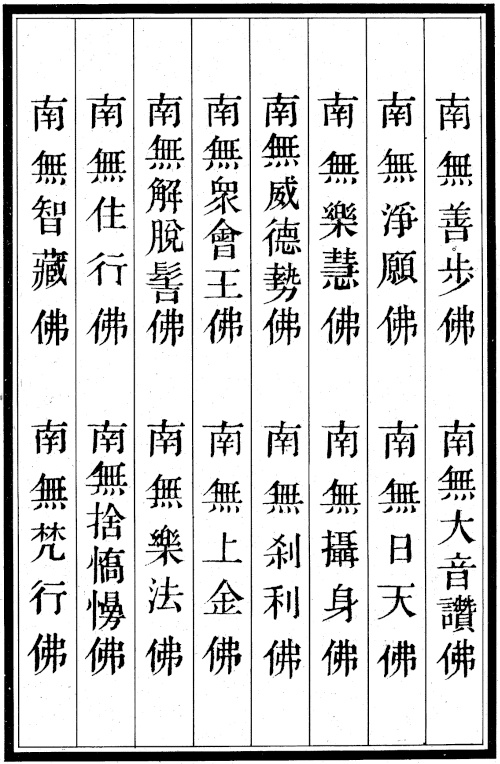 南無善步佛　南無大音讚佛
南無淨願佛　南無日天佛
南無樂慧佛　南無攝身佛
南無威德勢佛　南無刹利佛
南無眾會王佛　南無上金佛
南無解脫髻佛　南無樂法佛
南無住行佛　南無捨憍慢佛
南無智藏佛　南無梵行佛